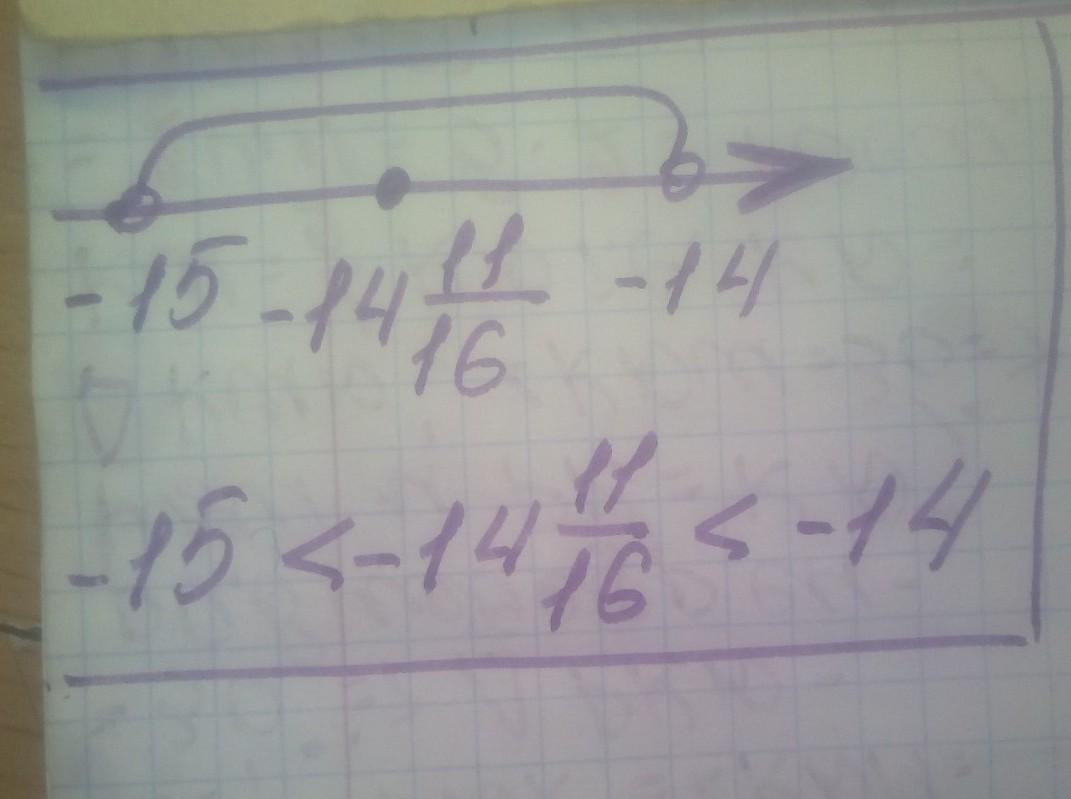 -15 -14 11/16 -14
-15 < -14 11/16 < -14